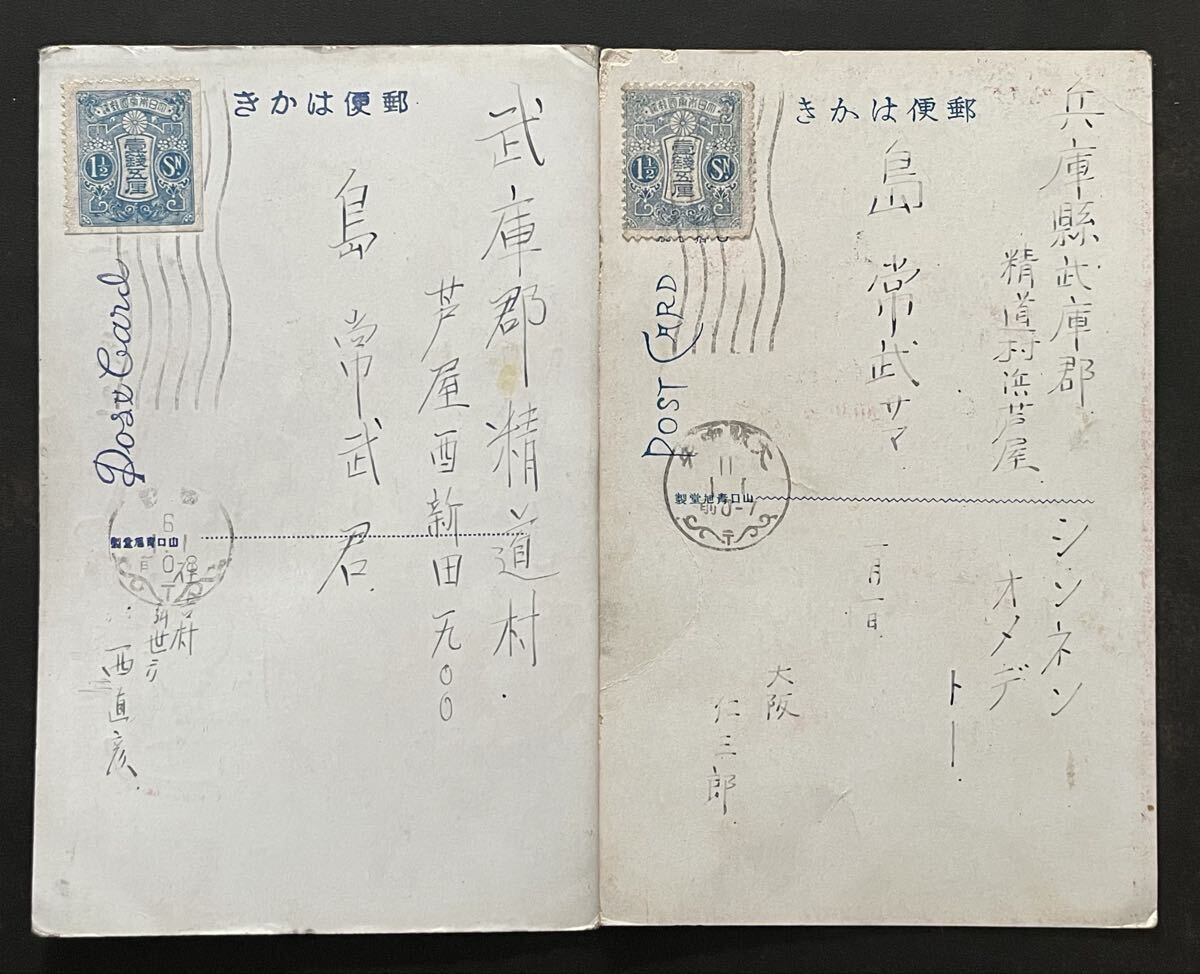 郵便はかき
大日本帝國郵便
壹錢五厘
1½ Sn
Post Card
武庫郡精道村
芦屋西新田九〇〇
島常武君
山口青旭堂製
住吉村
西直彦
6
1
0
郵便はかき
大日本帝國郵便
壹錢五厘
1½ Sn
POST CARD
兵庫縣武庫郡
精道村浜芦屋
島常武サマ
山口青旭堂製
11
1 1
前0-7
シンネン
オメデ
トー
一月一日
大阪
仁三郎